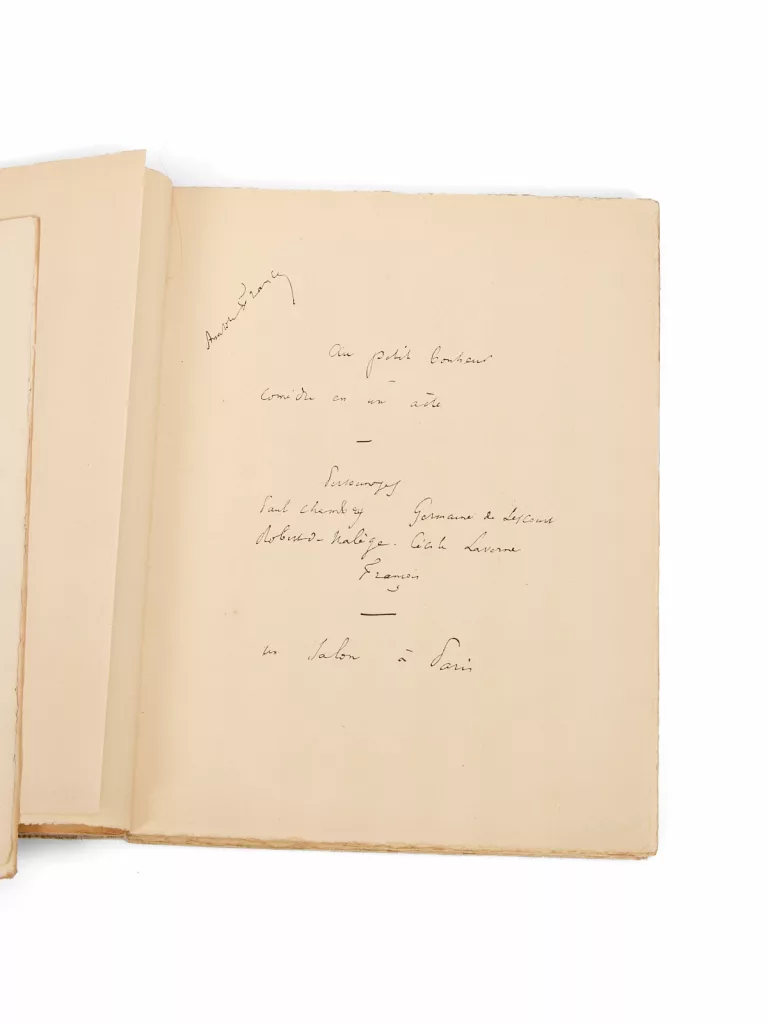 Anatole France
Au petit bonheur
comédie en un acte
Personnages
Paul Chambry Germaine de Lescourt
Robert de Nalège. Cécile Laverne
François
un salon à Paris